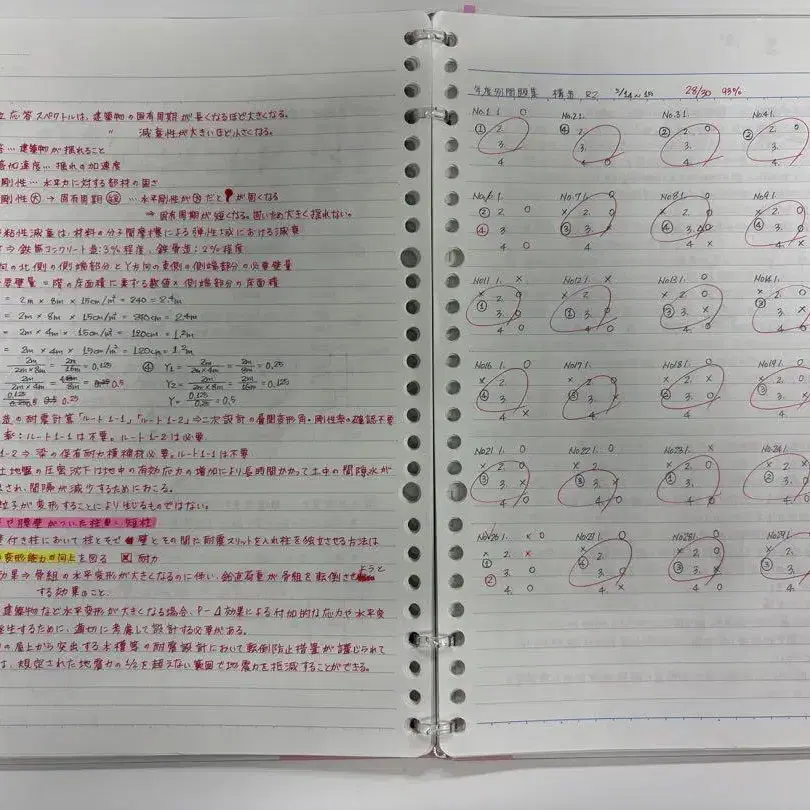 応答スペクトルは、建築物の固有周期が長くなるほど大きくなる。
〃 減衰性が大きいほど小さくなる。
… 建築物が揺れること
答加速度… 揺れの加速度
剛性… 水平力に対する部材の固さ
剛性大 → 固有周期 短 … 水平剛性が大だと が固くなる
⇒ 固有周期が短くなる。固いため大きく揺れない。
粘性減衰は材料の分子間摩擦による弾性域における減衰
⇒ 鉄筋コンクリート造：3%程度、鉄骨造：2%程度
の北側の側端部分とY方向の東側の側端部分の必要壁量
要壁量 = 階の床面積に乗ずる数値 × 側端部分の床面積
= 2m × 8m × 15cm/m² = 240 = 2.4m
= 2m × 8m × 15cm/m² = 240cm = 2.4m
= 2m × 4m × 15cm/m² = 120cm = 1.2m
= 2m × 4m × 15cm/m² = 120cm = 1.2m
2m/2m×8m = 2m/16m = 0.125 ④ Y1 = 2m/2m×4m = 2m/8m = 0.25
2m/2m×4m = /8m = 0.5 Y2 = 2m/2m×8m = 2m/16m = 0.125
0.25 Y = 0.125/0.25 = 0.5
造の耐震計算「ルート1-1」「ルート1-2」⇒ 二次設計の層間変形角・剛性率の確認不要
率：ルート1-1は不要。ルート1-2は必要
1-2 ⇒ 梁の保有耐力横補剛必要。ルート1-1は不要
土地盤の圧密沈下は地中の有効応力の増加により長時間かかって土中の間隙水が
され、間隙が減少するためにおこる。
粒子が変形することにより生じるものではない。
や腰壁がついた柱 短柱
壁付き柱において柱とそで壁との間に耐震スリットを入れ柱を独立させる方法は
変形能力の向上を図る 耐力
効果 ⇒ 骨組の水平変形が大きくなるのに伴い、鉛直荷重が骨組を転倒させようと
する効果のこと。
建築物など水平変形が大きくなる場合、P-Δ効果による付加的な応力や水平変
生するために、適切に考慮して設計する必要がある。
の屋上から突出する水槽等の耐震設計において転倒防止措置が講じられて
は、規定された地震力の1/2を超えない範囲で地震力を低減することができる。
年度別問題集 構造 R2 5/14～15 28/30 93%
No.1 1. 0 No.2 1. No.3 1. 0 No.4 1.
① 2. ④ 2. ② 2. 0 ② 2. 0
3. 3. 3. 3.
4. 4. 0 4. 4. 0
No.6 1. No.7 1. 0 No.8 1. 0 No.9 1.
② 2. 0 × 2. 0 × 2. 0 × 2. 0
④ 3. 0 ③ 3. × ④ 3. 0 ③ 3.
4. 0 4. 0 4. × 4. 0
No.11 1. × No.12 1. × No.13 1. 0 No.14 1.
2. 0 2. 0 × 2. 0 × 2. 0
① 3. 0 ① 3. 0 ③ 3. × ② 3.
4. 0 4. 0 4. 0 4. 0
No.16 1. 0 No.17 1. No.18 1. 0 No.19 1.
× 2. 0 × 2. 0 × 2. × × 2. 0
④ 3. 0 ③ 3. × ② 3. 0 ③ 3.
4. × 4. 0 4. 0 4. 0
No.21 1. 0 No.22 1. No.23 1. × No.24 1.
× 2. 0 × 2. × 2. 0 × 2. ×
③ 3. × ③ 3. × ① 3. 0 ② 3.
4. 0 4. 0 4. 0 4. 0
No.26 1. × 0 No.27 1. 0 No.28 1. 0 No.29 1.
× 2. × × 2. × 2. 0 × 2.
① 3. 0 ④ 3. ③ 3. × ③ 3.
② 4. 0 4. × 4. 0 4. 0